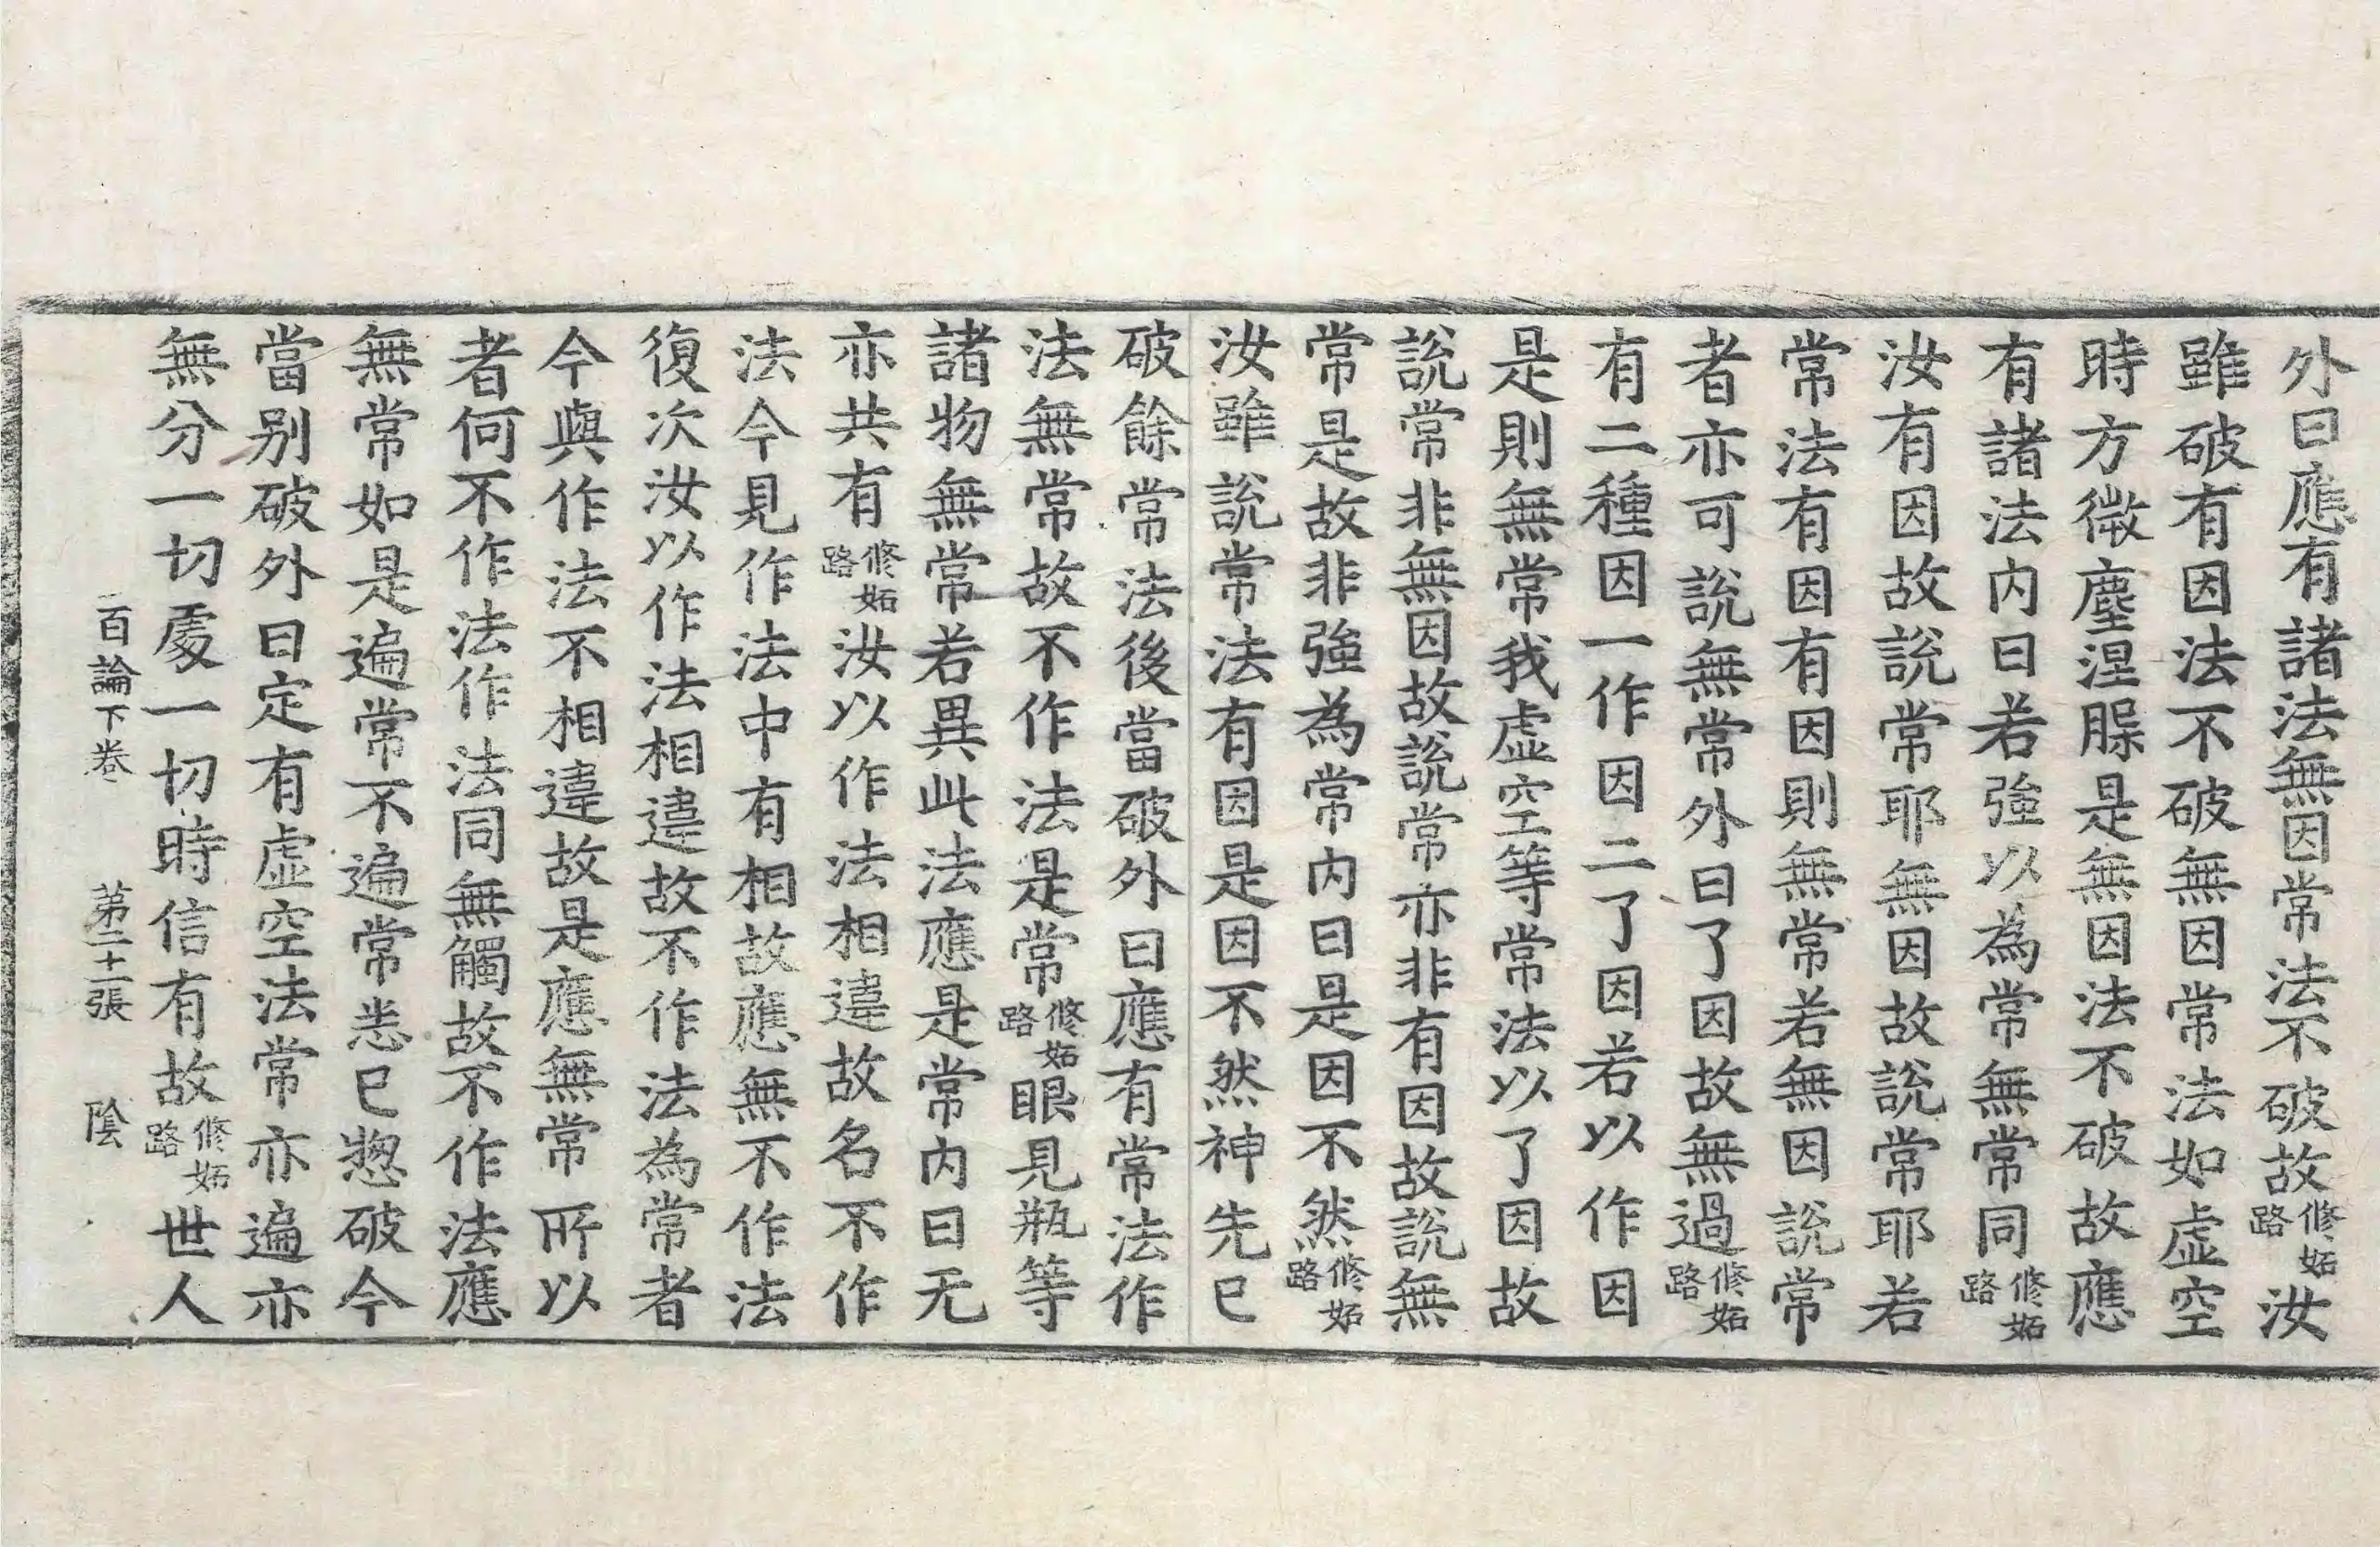 外曰應有諸法無因常法不破故修妬路汝
雖破有因法不破無因常法如虛空
時方微塵涅槃是無因法不破故應
有諸法內曰若強以為常無常同修妬路
汝有因故說常耶無因故說常耶若
常法有因有因則無常若無因說常
者亦可說無常外曰了因故無過修妬路
有二種因一作因二了因若以作因
是則無常我虛空等常法以了因故
說常非無因故說常亦非有因故說無
常是故非強為常內曰是因不然修妬路
汝雖說常法有因是因不然神先已
破餘常法後當破外曰應有常法作
法無常故不作法是常修妬路眼見瓶等
諸物無常若異此法應是常內曰无
亦共有修妬路汝以作法相違故名不作
法今見作法中有相故應無不作法
復次汝以作法相違故不作法為常者
今與作法不相違故是應無常所以
者何不作法作法同無觸故不作法應
無常如是遍常不遍常悉已惣破今
當別破外曰定有虛空法常亦遍亦
無分一切處一切時信有故修妬路世人
百論下卷 第二十二張 陰